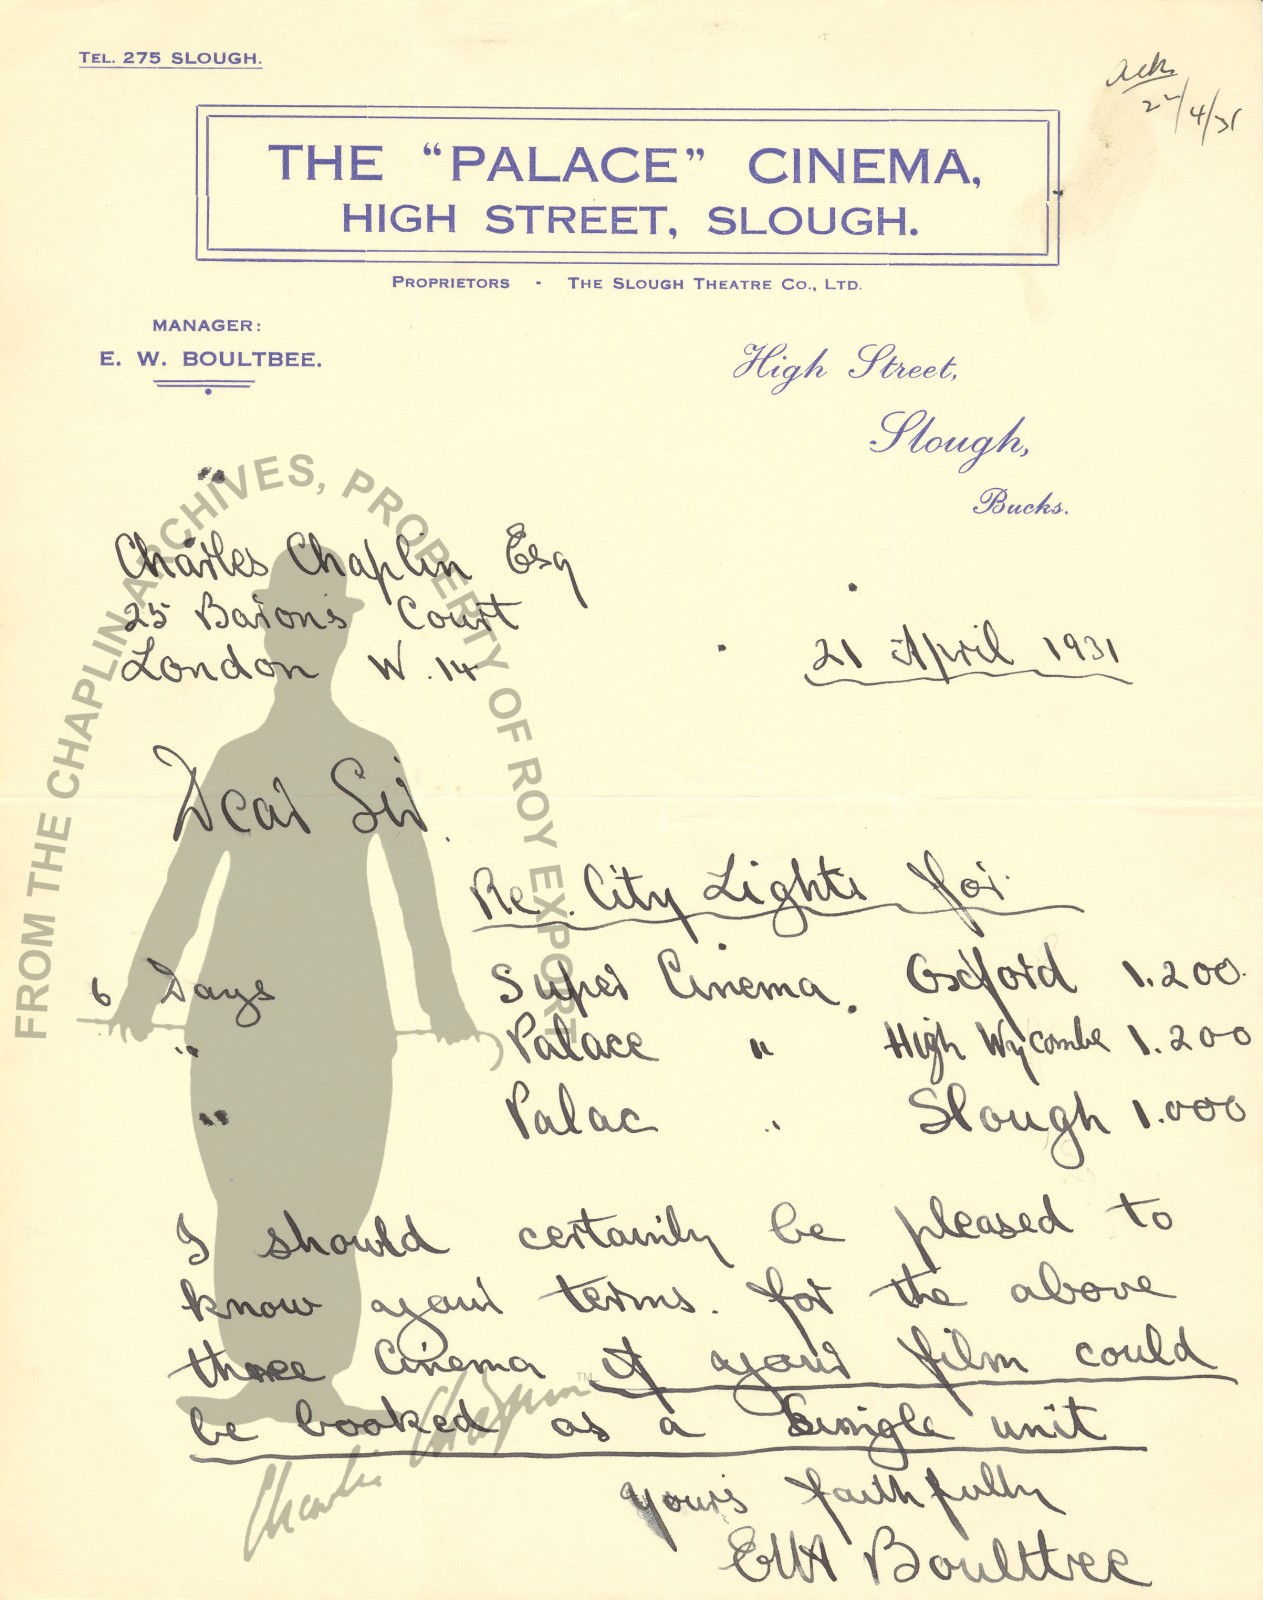 TEL. 275 SLOUGH.
Ack
22/4/31
THE “PALACE” CINEMA,
HIGH STREET, SLOUGH.
PROPRIETORS - THE SLOUGH THEATRE CO., LTD.
MANAGER:
E. W. BOULTBEE.
High Street,
Slough,
Bucks.
Charles Chaplin Esq
25 Barons Court
London W.14
21 April 1931
Dear Sir.
Re. City Lights for
6 Days Super Cinema. Oxford 1.200.
" Palace " High Wycombe 1.200
" Palac " Slough 1.000
I should certainly be pleased to
know your terms. for the above
three Cinema if your film could
be booked as a single unit
yours faithfully
EW Boultbee
FROM THE CHAPLIN ARCHIVES, PROPERTY OF ROY EXPORT
Charlie Chaplin TM